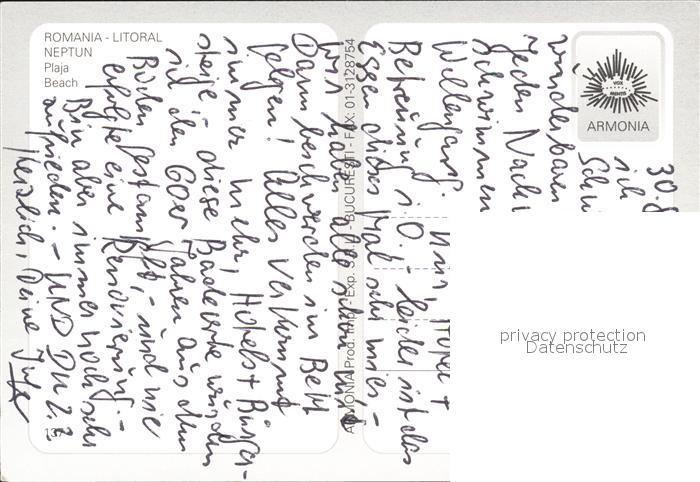 ROMANIA - LITORAL
NEPTUN
Plaja
Beach
VOX
MENTIS
ARMONIA
ARMONIA Prod. Impex - Exp. S.R.L. - BUCURESTI - FAX: 01-3128754
privacy protection
Datenschutz
30.8
ich
Schw
wunderbaren
jeden Nach
Schwimmen
Wellengang. Nur Hotel +
Betreuung i.O. - leider ist das
Essen dieses Mal sehr mies -
wir haben alle schon mit
Darmbeschwerden im Bett
gelegen! Alles verkommt
immer mehr, Hotels + Bürger-
steige - diese Badeorte wurden
in den 60er Jahren aus dem
Boden gestampft - und nie
erfolgte eine Renovierung. -
Bin aber immer noch sehr
zufrieden. - UND DU?
Herzlich, Deine